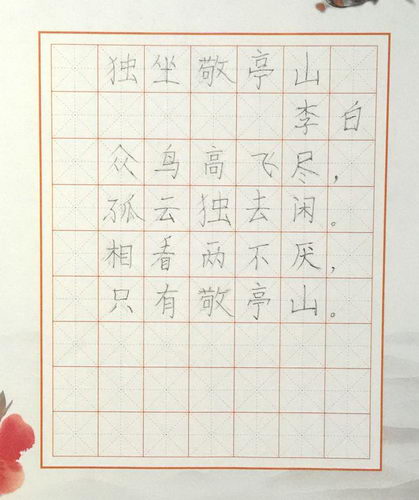 独坐敬亭山
李白
众鸟高飞尽，
孤云独去闲。
相看两不厌，
只有敬亭山。